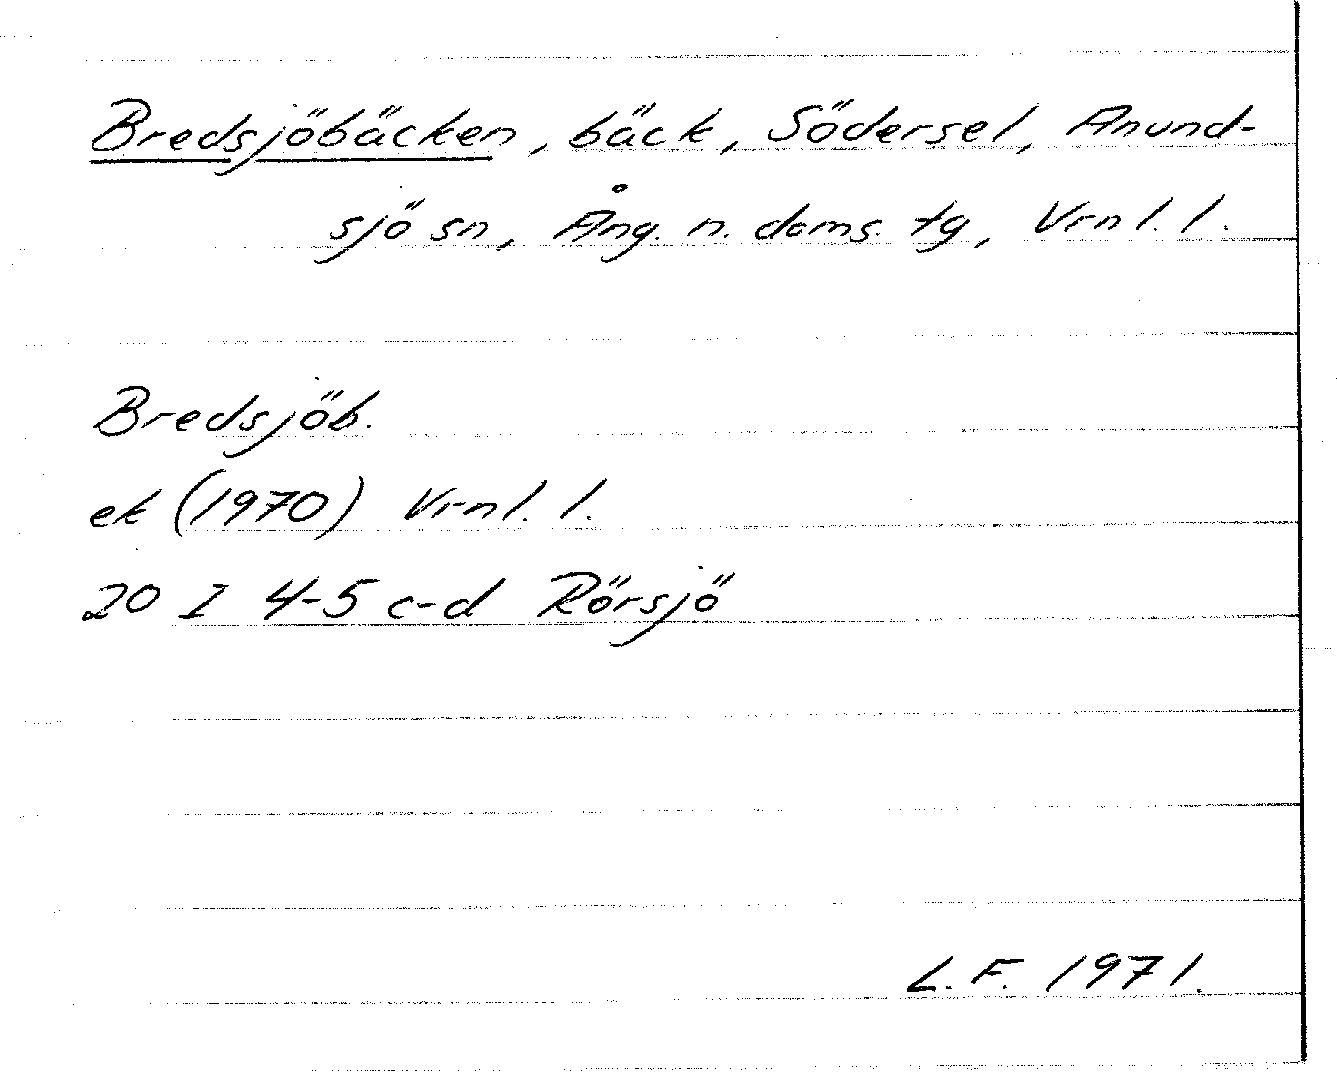 Bredsjöbäcken, bäck, Södersel, Anund-
sjö sn, Ång. n. doms. tg, Vrnl. l.
Bredsjöb.
ek (1970) Vrnl. l.
20 I 4-5 c-d Rörsjö
L. F. 1971.